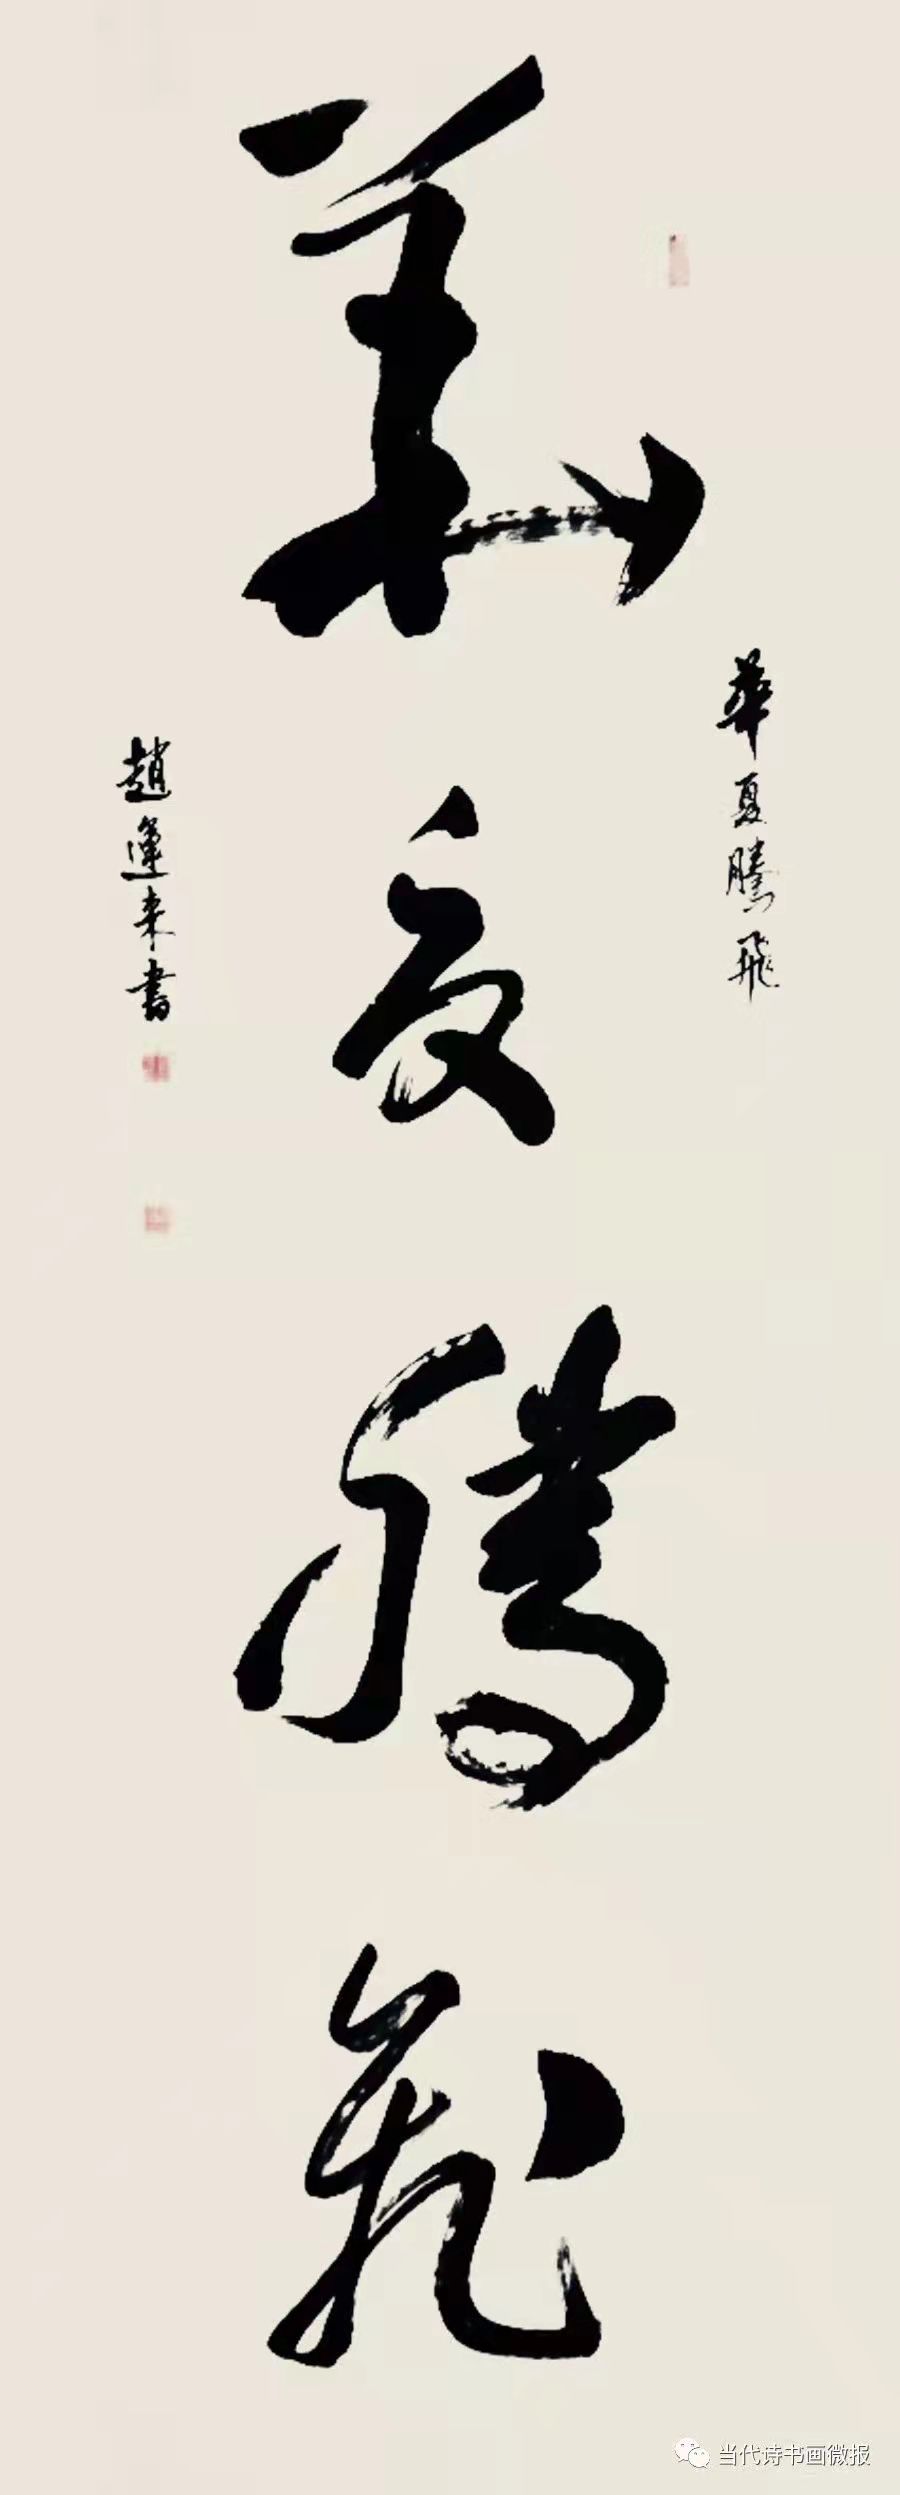 華夏騰飛
華夏騰飛
趙運來書
当代诗书画微报